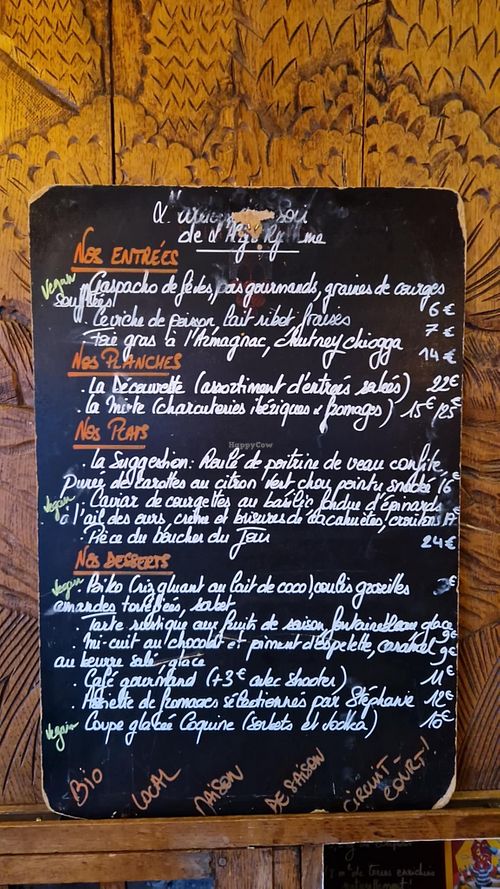 de l'Hé
NOS ENTRÉES
Vegan
. Gaspacho de fèves, pois gourmands, graines de courges
soufflées 6€
. Ceviche de poisson, lait ribot, fraises 7€
. Foie gras à l'Armagnac, chutney chiogga 14€
NOS PLANCHES
. La Découverte (assortiment d'entrées salées) 22€
. La Mixte (charcuteries ibériques & fromages) 15€/25€
NOS PLATS
. La Suggestion : Roulé de poitrine de veau confite
Purée de carottes au citron vert, chou pointu snacké 16€
Vegan
. Caviar de courgettes au basilic, fondue d'épinards
à l'ail des ours, crème et brisures de cacahuètes, croûtons 17€
. Pièce du boucher du Jour 24€
NOS DESSERTS
Vegan
. (riz gluant au lait de coco) coulis groseilles
amandes torréfiées, sorbet
. Tarte rustique aux fruits de saison, fontainebleau glace 9€
. Mi-cuit au chocolat et piment d'espelette, caramel
au beurre salé, glace 9€
. Café gourmand (+3€ avec shooter) 11€
. Assiette de fromages sélectionnés par Stéphanie 12€
Vegan
. Coupe glacée Coquine (sorbets et vodka) 10€
BIO
LOCAL
MAISON
DE SAISON
CIRCUIT-
COURT !
HappyCow